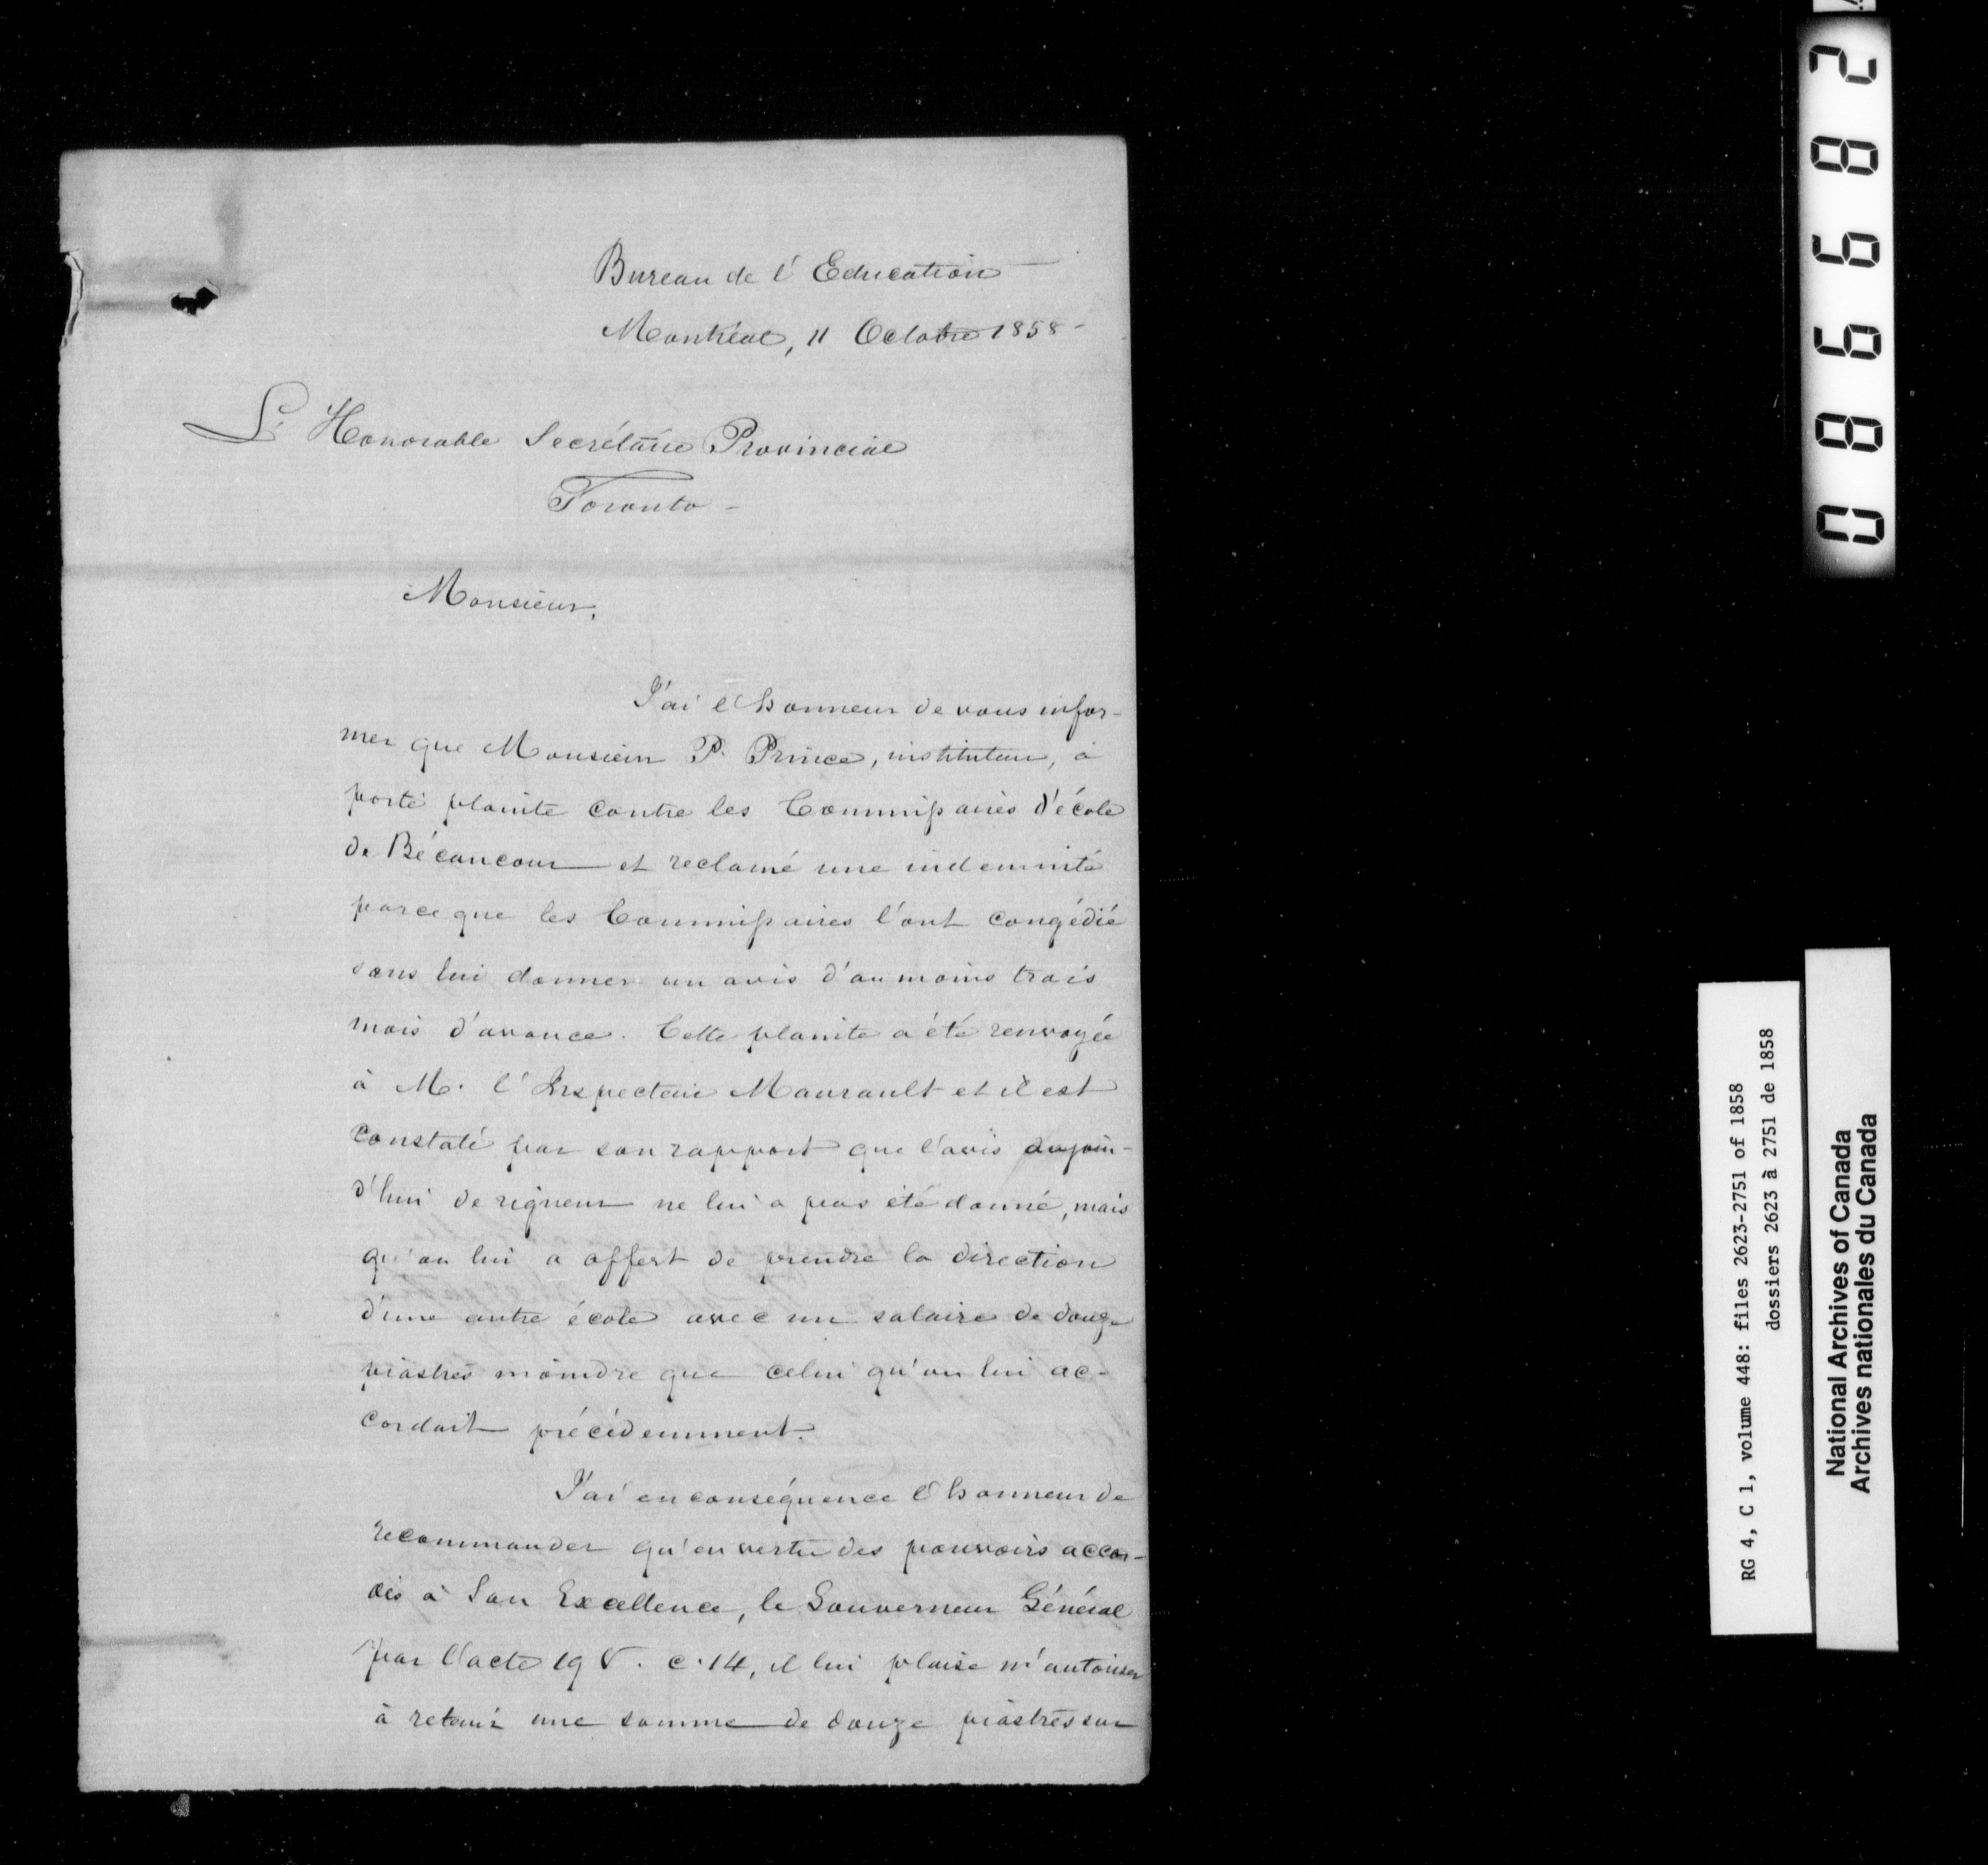 Bureau de l'Education
Montréal, 11 Octobre 1858 -
L'Honorable Secrétaire Provincial
Toronto -
Monsieur,
J'ai l'honneur de vous infor-
mer que Monsieur P. Prince, instituteur, a
porté plainte contre les Commissaires d'école
de Bécancour et reclamé une indemnité
parceque les Commissaires l'ont congédié
sans lui donner un avis d'au moins trois
mois d'avance. Cette plainte a été renvoyée
à M. l'Inspecteur Maurault et il est
constaté par son rapport que l'avis aujour-
d'hui de rigueur ne lui a pas été donné, mais
qu'on lui a offert de prendre la direction
d'une autre école avec un salaire de douze
piastres moindre que celui qu'on lui ac-
cordait précédemment.
J'ai en conséquence l'honneur de
recommander qu'en vertu des pouvoirs accor-
dés à Son Excellence, le Gouverneur Général
par l'acte 19 V. c. 14, il lui plaise m'autoriser
à retenir une somme de douze piastres sur
086682
RG 4, C 1, volume 448: files 2623-2751 of 1858
dossiers 2623 à 2751 de 1858
National Archives of Canada
Archives nationales du Canada